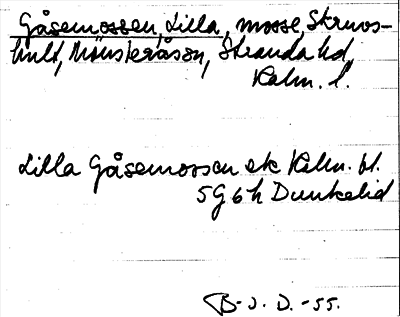 Gåsemossen, Lilla, mosse, Skruvs-
hult, Mönsteråson, Stranda hd
Kalm. l.
Lilla Gåsemossen ek Kalm. bl.
5G6h Dunkelid
B-J. D. -55.